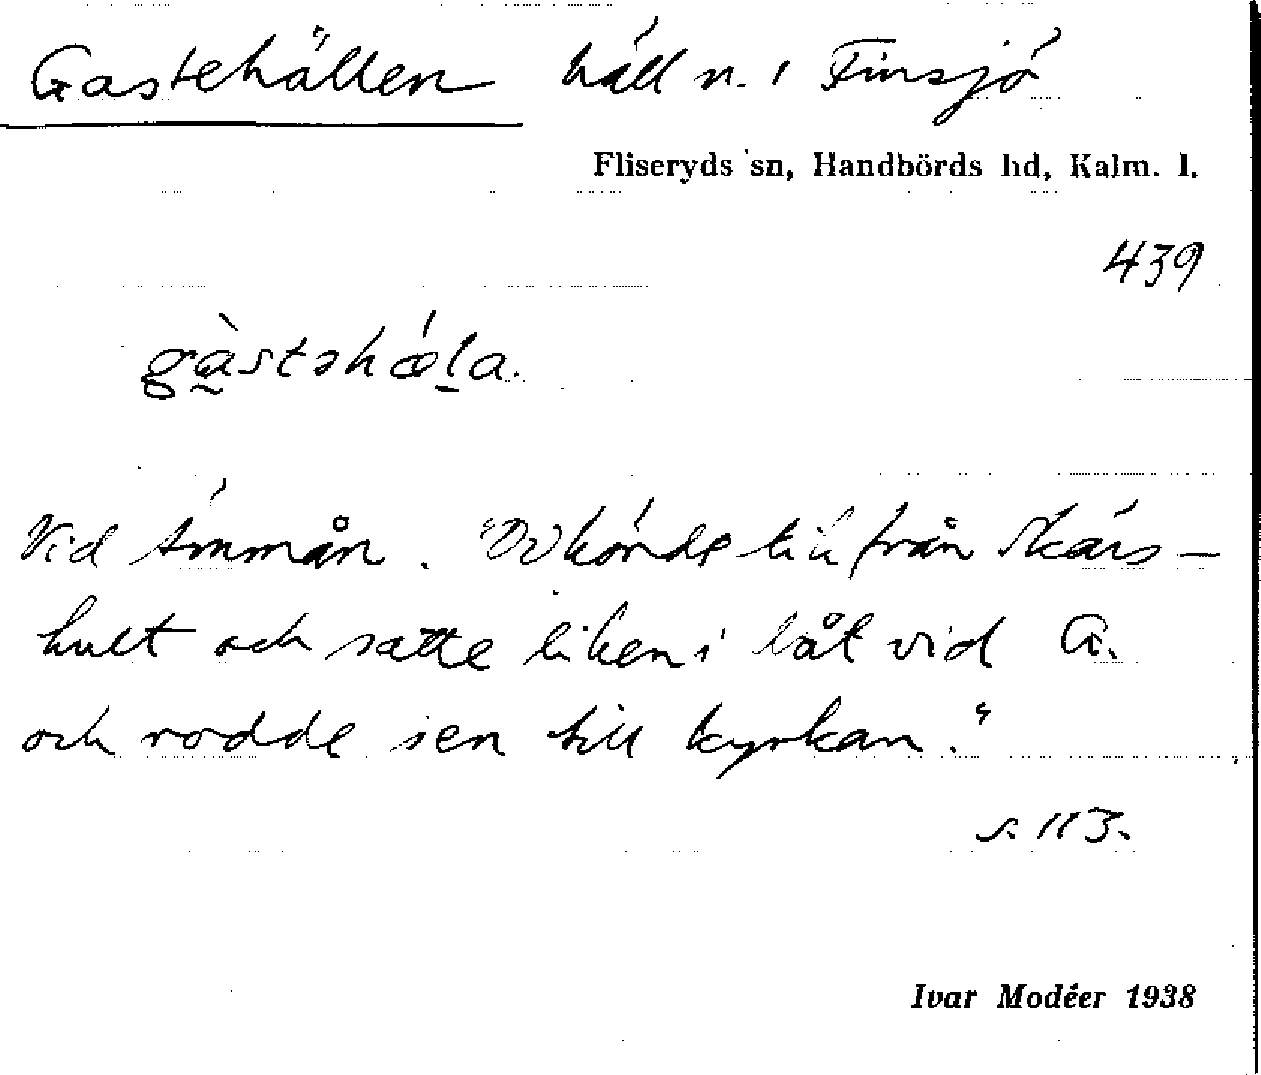 Gastehällen häll n. i Finsjö
Fliseryds sn, Handbörds hd, Kalm. l.
439
gàstəhǽla.
Vid Ämmån. "De körde lik från Skärs-
hult och satte liken i båt vid G.
och rodde sen till kyrkan."
s. 113.
Ivar Modéer 1938